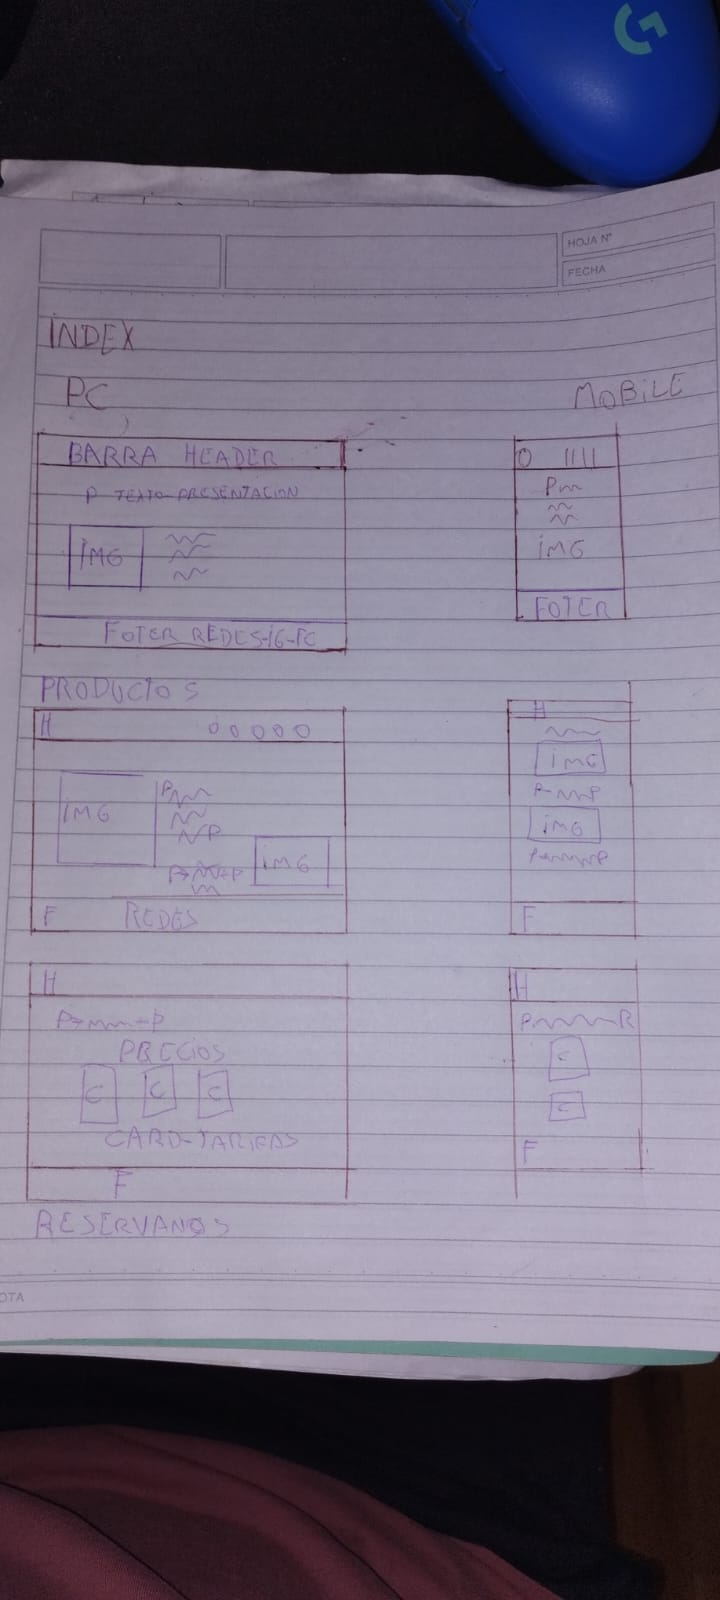 HOJA N°
FECHA
INDEX
PC
MOBILE
BARRA HEADER
P TEXTO-PRESENTACION
IMG
FOTER REDES-IG-FC
O IIII
P
IMG
FOTER
PRODUCTOS
H O O O O O
IMG
P
P
P P
IMG
F REDES
H
IMG
P P
IMG
P P
F
H
P P
PRECIOS
C C C
CARD-TARIFAS
F
H
P R
C
C
F
RESERVANOS
OTA